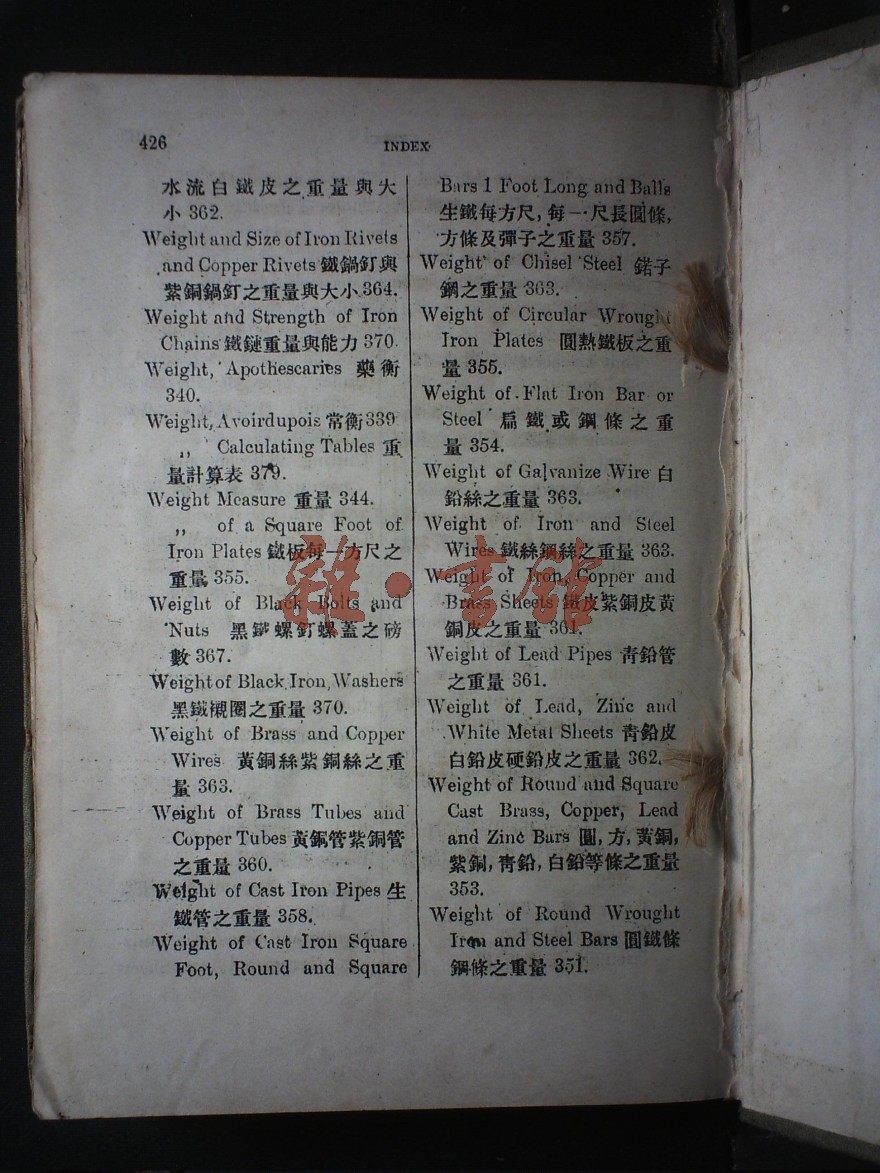 426
INDEX
水流白鐵皮之重量與大
小 362.
Weight and Size of Iron Rivets
and Copper Rivets 鐵鍋釘與
紫銅鍋釘之重量與大小 364.
Weight and Strength of Iron
Chains 鐵鏈重量與能力 370.
Weight, Apothescaries 藥衡
340.
Weight, Avoirdupois 常衡 339
,, Calculating Tables 重
量計算表 379.
Weight Measure 重量 344.
,, of a Square Foot of
Iron Plates 鐵板每一方尺之
重量 355.
Weight of Black Bolts and
Nuts 黑鐵螺釘螺蓋之磅
數 367.
Weight of Black Iron Washers
黑鐵襯圈之重量 370.
Weight of Brass and Copper
Wires 黃銅絲紫銅絲之重
量 363.
Weight of Brass Tubes and
Copper Tubes 黃銅管紫銅管
之重量 360.
Weight of Cast Iron Pipes 生
鐵管之重量 358.
Weight of Cast Iron Square
Foot, Round and Square
Bars 1 Foot Long and Balls
生鐵每方尺, 每一尺長圓條,
方條及彈子之重量 357.
Weight of Chisel Steel 鍩子
鋼之重量 363.
Weight of Circular Wrought
Iron Plates 圓熱鐵板之重
量 355.
Weight of Flat Iron Bar or
Steel 扁鐵或鋼條之重
量 354.
Weight of Galvanize Wire 白
鉛絲之重量 363.
Weight of Iron and Steel
Wires 鐵絲鋼絲之重量 363.
Weight of Iron, Copper and
Brass Sheets 鐵皮紫銅皮黃
銅皮之重量 361.
Weight of Lead Pipes 青鉛管
之重量 361.
Weight of Lead, Zinc and
White Metal Sheets 青鉛皮
白鉛皮硬鉛皮之重量 362.
Weight of Round and Square
Cast Brass, Copper, Lead
and Zinc Bars 圓, 方, 黃銅,
紫銅, 青鉛, 白鉛等條之重量
353.
Weight of Round Wrought
Iron and Steel Bars 圓鐵條
鋼條之重量 351.
雜·書館